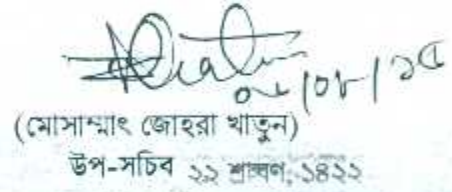 ০৬/০৮/১৫
(মোসাম্মাৎ জোহরা খাতুন)
উপ-সচিব ২২ শ্রাবণ, ১৪২২